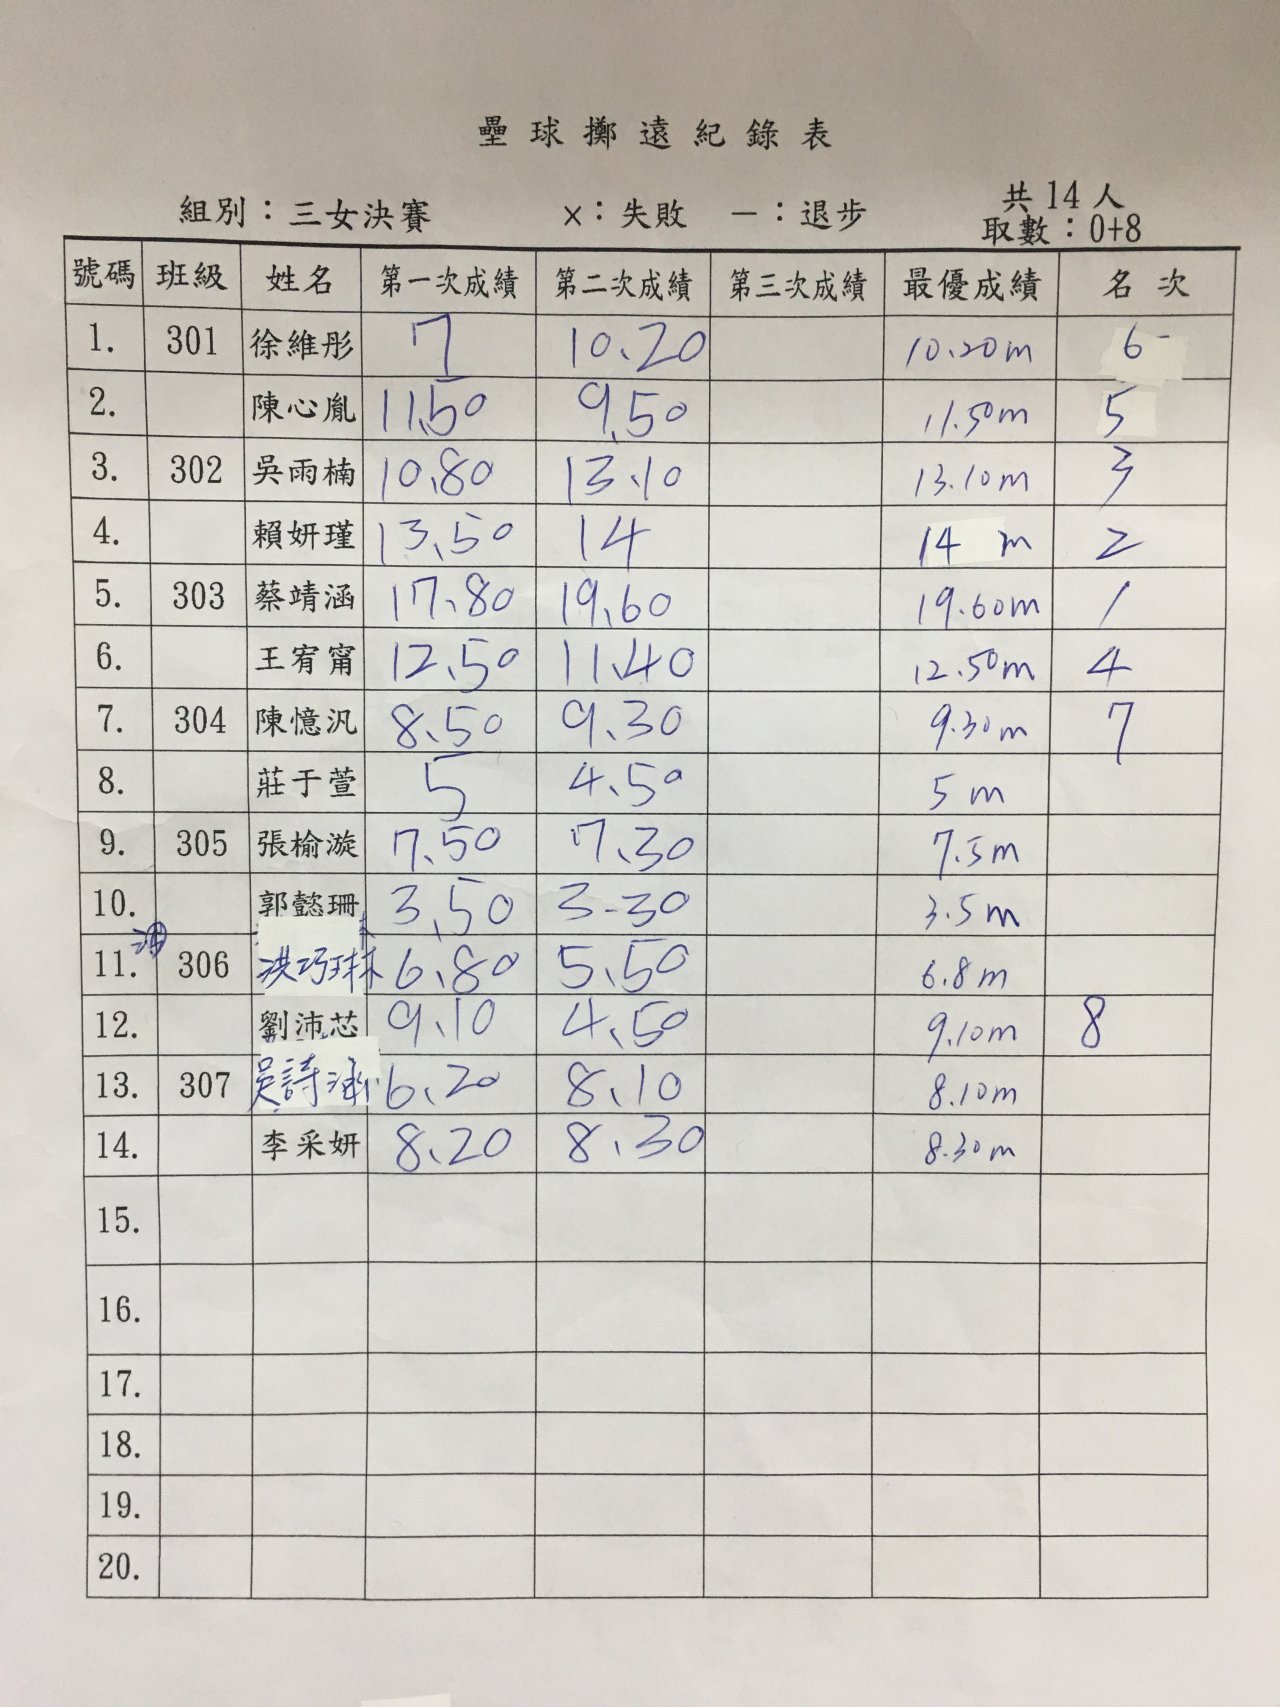 壘球擲遠紀錄表
組別：三女決賽 ×：失敗 －：退步 共14人
取數：0+8
號碼 班級 姓名 第一次成績 第二次成績 第三次成績 最優成績 名次
1. 301 徐維彤 7 10.20 10.20m 6
2. 陳心胤 11.50 9.50 11.50m 5
3. 302 吳雨楠 10.80 13.10 13.10m 3
4. 賴妍瑾 13.50 14 14 m 2
5. 303 蔡靖涵 17.80 19.60 19.60m 1
6. 王宥甯 12.50 11.40 12.50m 4
7. 304 陳憶汎 8.50 9.30 9.30m 7
8. 莊于萱 5 4.50 5m
9. 305 張榆漩 7.50 7.30 7.5m
10. 郭懿珊 3.50 3.30 3.5m
11. 306 洪巧琳 6.80 5.50 6.8m
12. 劉沛芯 9.10 4.50 9.10m 8
13. 307 吳詩涵 6.20 8.10 8.10m
14. 李采妍 8.20 8.30 8.30m
15.
16.
17.
18.
19.
20.